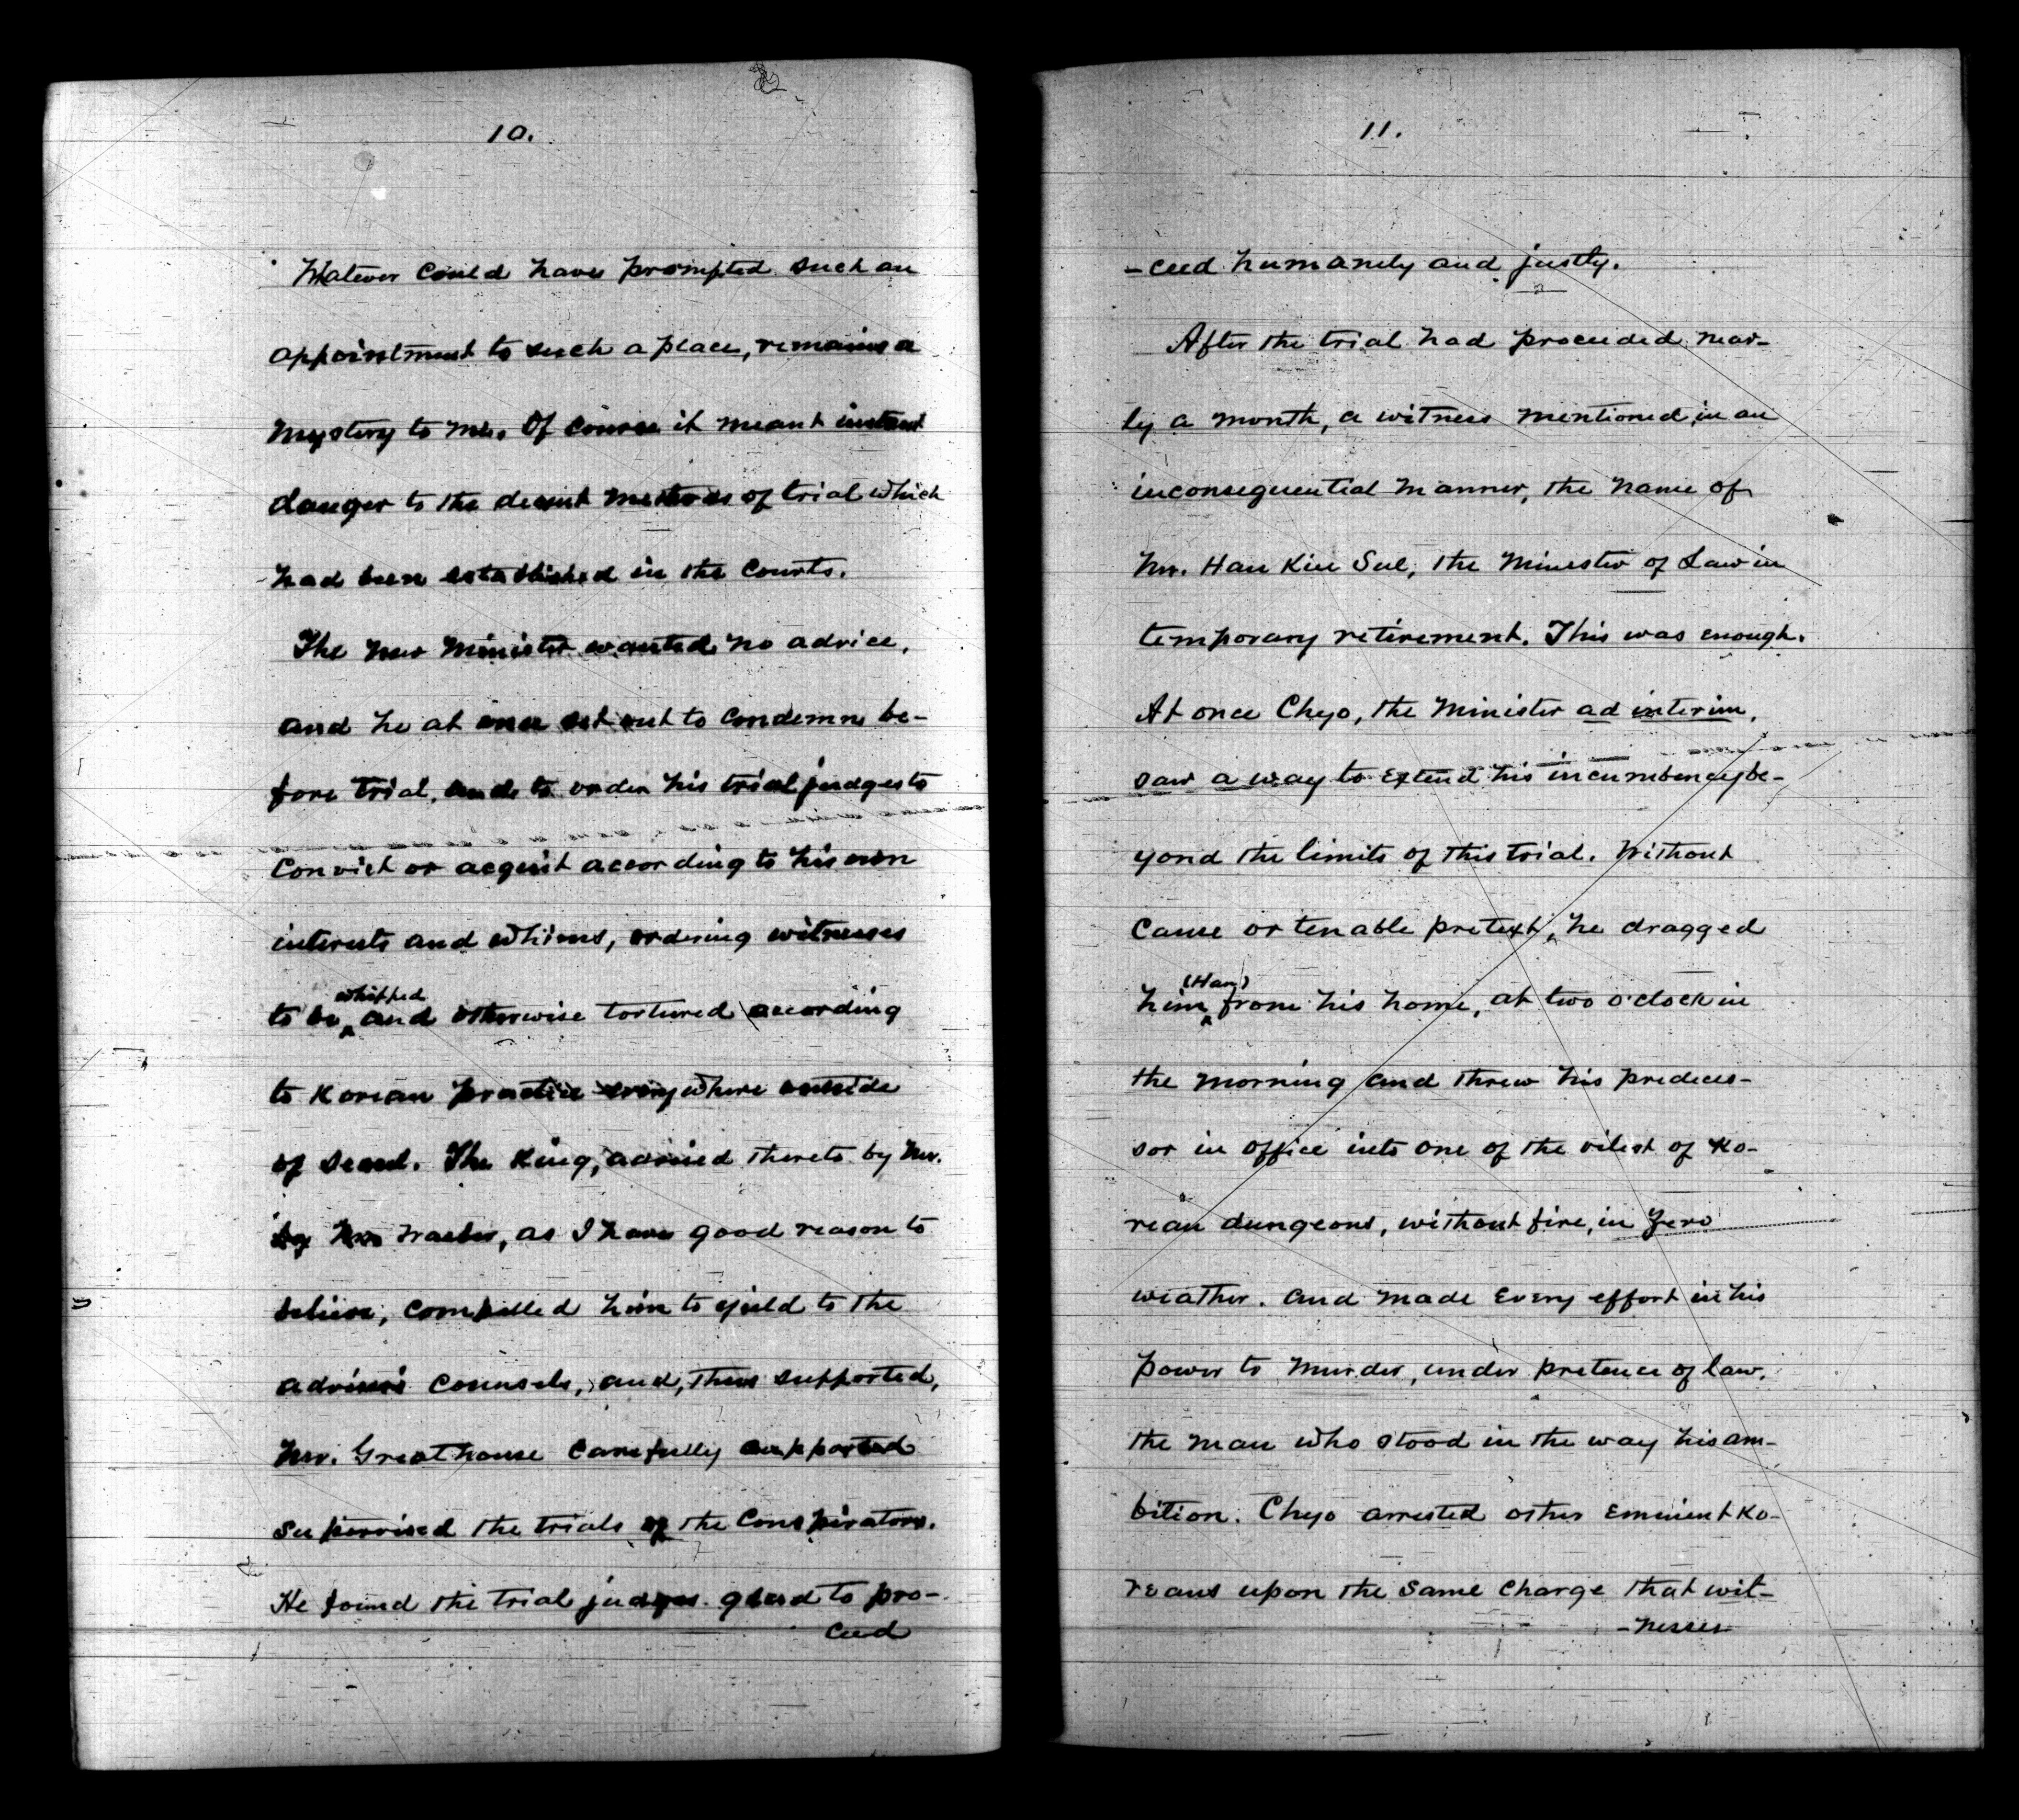 10.
Whatever could have prompted such an
appointment to such a place, remains a
mystery to me. Of course it meant instant
danger to the decent methods of trial which
had been established in the Courts.
The new Minister wanted no advice,
and he at once set out to condemn be-
fore trial, and to order his trial judges to
convict or acquit according to his own
interests and whims, ordering witnesses
whipped
to be ^ and otherwise tortured according
to Korean practice everywhere outside
of Seoul. The King, advised thereto by Mr.
by Mr. Waeber, as I have good reason to
believe, compelled him to yield to the
advisers counsels, and, thus supported,
Mr. Greathouse carefully supported
supervised the trials of the Conspirators.
He found the trial judges glad to pro-
ceed
11.
-ceed humanely and justly.
After the trial had proceeded near-
ly a month, a witness mentioned, in an
inconsequential manner, the name of
Mr. Han Kiu Sul, the Minister of Law in
temporary retirement. This was enough.
At once Chyo, the Minister ad interim,
saw a way to extend his incumbency be-
yond the limits of this trial. Without
cause or tenable pretext, he dragged
(Han)
him ^ from his home, at two o'clock in
the morning and threw his predeces-
sor in office into one of the vilest of Ko-
rean dungeons, without fire, in Zero
weather. And made every effort in his
power to murder, under pretence of law,
the man who stood in the way his am-
bition. Chyo arrested other eminent Ko-
reans upon the same charge that wit-
-nesses